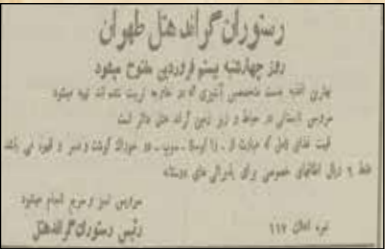 رستوران گراند هتل طهران
روز چهارشنبه بیستم فروردین مفتوح میشود
بهترین اغذیه بدست متخصصین آشپزی که در خارجه تربیت شده اند تهیه میشود
سرویس تابستانی در حیاط و زیر زمین گراند هتل دائر است
قیمت غذای کامل که عبارت از سوپ دو خوراک گوشت و دسر و قهوه می باشد
فقط ریال اطاقهای خصوصی برای پذیرائی های دوستانه
سرویس تمیز و سریع انجام میشود
نمره اعلان ۱۱۷ رئیس رستوران گراند هتل